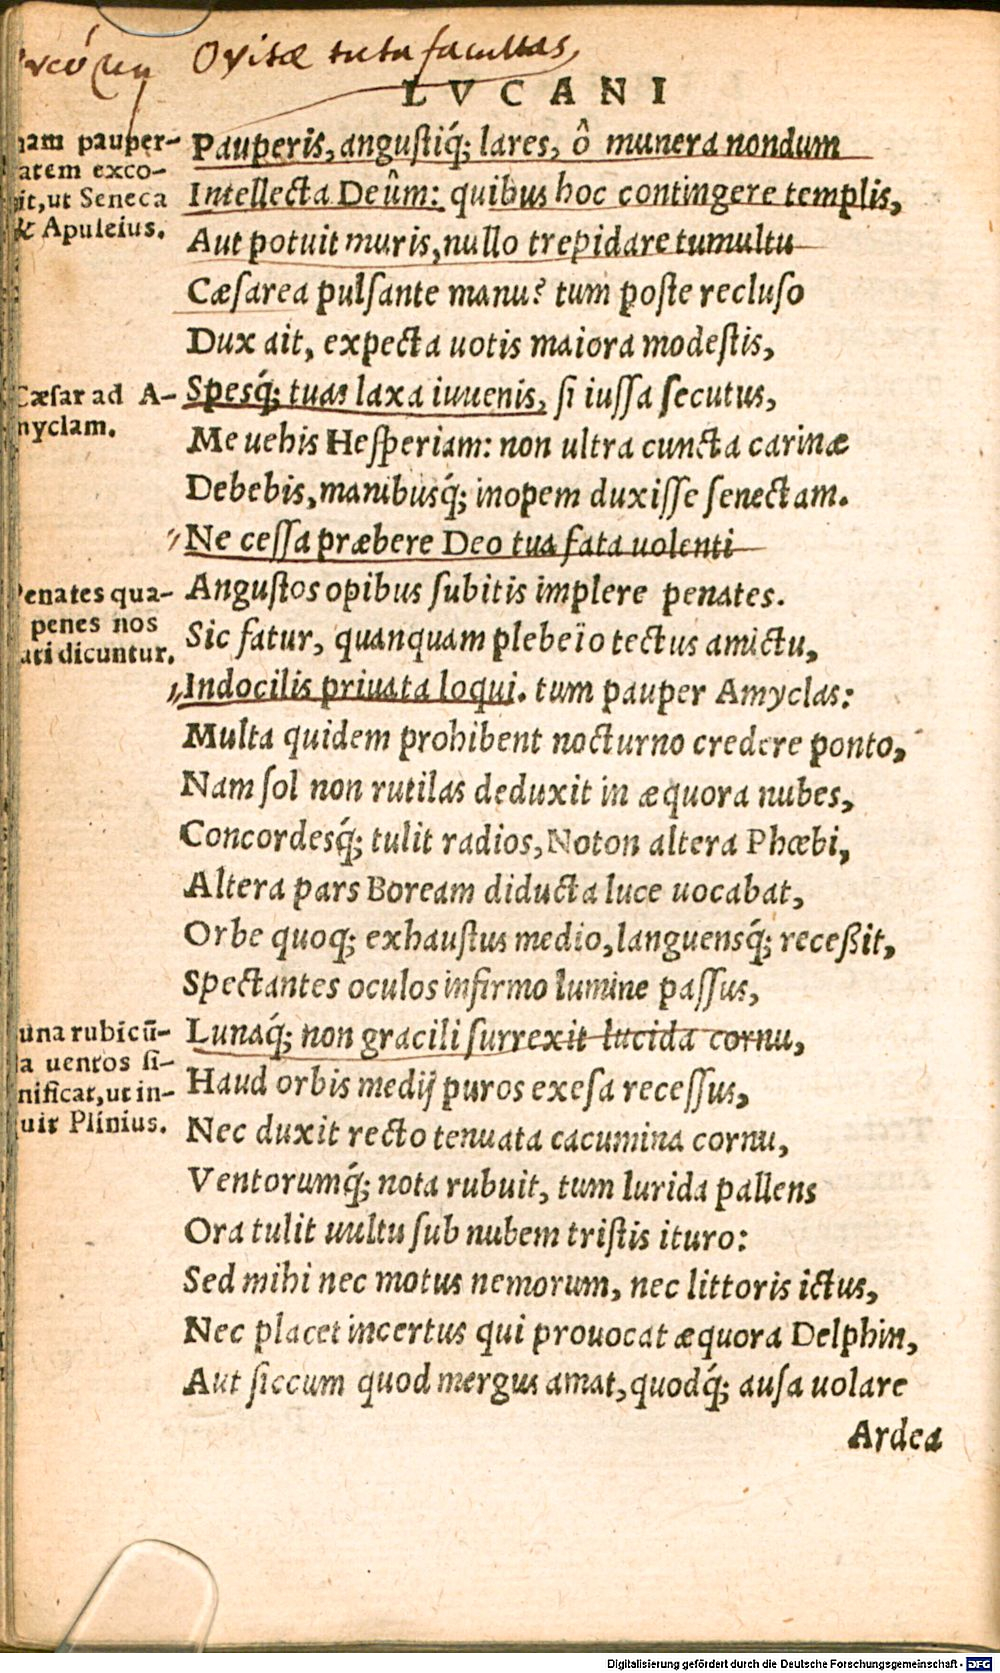 O vitæ tuta facultas,
LVCANI
Pauperis, angustiq́; lares, ô munera nondum
Intellecta Deûm: quibus hoc contingere templis,
Aut potuit muris, nullo trepidare tumultu
Cæsarea pulsante manu? tum poste recluso
Dux ait, expecta uotis maiora modestis,
Spesq́; tuas laxa iuuenis, si iussa secutus,
Me uehis Hesperiam: non ultra cuncta carinæ
Debebis, manibusq́; inopem duxisse senectam.
Ne cessa præbere Deo tua fata uolenti
Angustos opibus subitis implere penates.
Sic fatur, quanquam plebeïo tectus amictu,
Indocilis priuata loqui. tum pauper Amyclas:
Multa quidem prohibent nocturno credere ponto,
Nam sol non rutilas deduxit in æquora nubes,
Concordesq́; tulit radios, Noton altera Phœbi,
Altera pars Boream diducta luce uocabat,
Orbe quoq; exhaustus medio, languensq́; receßit,
Spectantes oculos infirmo lumine passus,
Lunaq́; non gracili surrexit lucida cornu,
Haud orbis medij puros exesa recessus,
Nec duxit recto tenuata cacumina cornu,
Ventorumq́; nota rubuit, tum lurida pallens
Ora tulit uultu sub nubem tristis ituro:
Sed mihi nec motus nemorum, nec littoris ictus,
Nec placet incertus qui prouocat æquora Delphin,
Aut siccum quod mergus amat, quodq́; ausa uolare
Ardea
nam pauper-
atem exco-
it, ut Seneca
& Apuleius.
Cæsar ad A-
myclam.
Penates qua-
penes nos
ati dicuntur.
una rubicū-
a uentos si-
nificat, ut in-
uit Plinius.
Digitalisierung gefördert durch die Deutsche Forschungsgemeinschaft - DFG